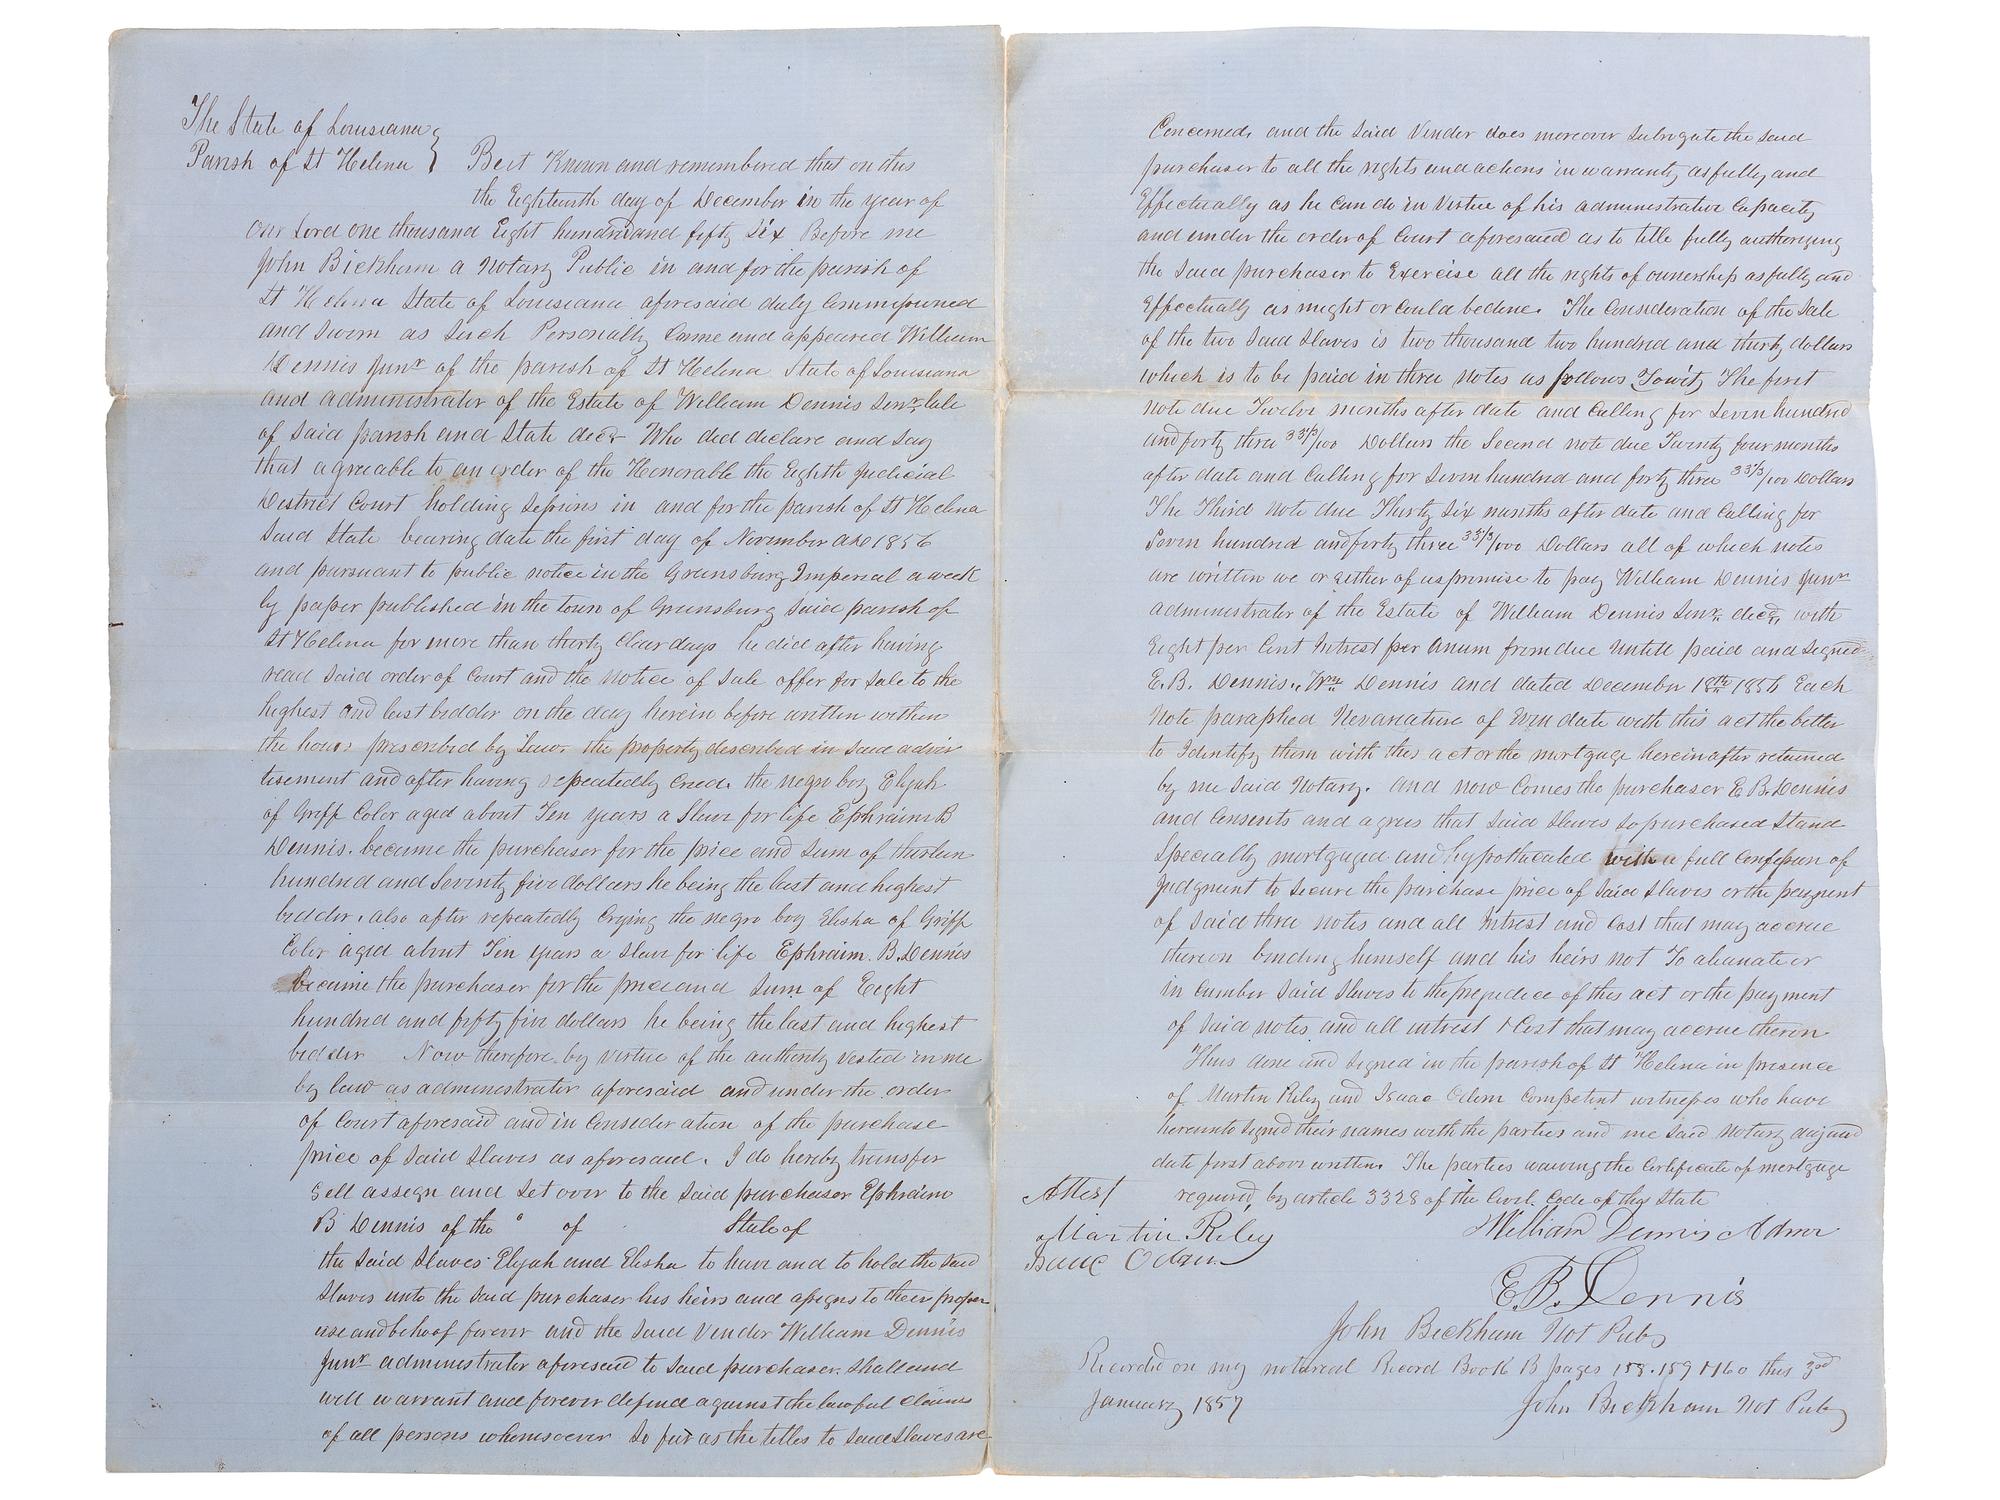 The State of Louisiana
Parish of St Helena } Beit Known and remembered that on this
the Eighteenth day of December in the year of
our Lord one thousand Eight hundred and fifty Six Before me
John Bickham a Notary Public in and for the parish of
St Helena State of Louisiana aforesaid duly Commissioned
and Sworn as Such Personally Came and appeared William
Dennis Junr of the parish of St Helena State of Louisiana
and administrator of the Estate of William Dennis Senr late
of Said parish and State decd Who did declare and Say
that agreable to an order of the Honorable the Eighth Judicial
District Court holding Sessions in and for the parish of St Helena
Said State bearing date the first day of November AD 1856
and pursuant to public notice in the Greensburg Imperial a week
ly paper published in the town of Greensburg Said parish of
St Helena for more than thirty Clear days he did after having
read Said order of Court and the Notice of Sale offer for Sale to the
highest and last bidder on the day herein before written within
the hours prescribed by Law. the property described in Said adver
tisement and after having repeatedly Cried. the negro boy Elijah
of Griff Color aged about Ten years a Slave for life Ephraim B
Dennis. became the purchaser for the price and Sum of thirteen
hundred and Seventy five dollars he being the last and highest
bidder. also after repeatedly Crying the negro boy Elisha of Griff
Color aged about Ten years a Slave for life Ephraim. B. Dennis
became the purchaser for the price and Sum of Eight
hundred and fifty five dollars he being the last and highest
bidder Now therefore by virtue of the authority vested in me
by law as administrator aforesaid and under the order
of Court aforesaid and in Consideration of the purchase
price of Said Slaves as aforesaid. I do hereby transfer
Sell assegn and Set over to the Said purchaser Ephraim
B Dennis of the of State of
the Said Slaves Elijah and Elisha to have and to hold the Said
Slaves unto the Said purchaser his heirs and assigns to their proper
use and behoof forever and the Said Vender William Dennis
Junr administrator aforesaid to Said purchaser. Shall and
will warrant and forever defend against the lawful Claims
of all persons whomsoever So far as the titles to Said Slaves are
Concerned, and the Said Vender does moreover Subrogate the Said
purchaser to all the rights and actions in warranty as fully and
Effectually as he Can do in Virtue of his administrative Capacity
and under the order of Court aforesaid as to title fully authorizing
the Said purchaser to Exercise all the rights of ownership as fully and
Effectually as might or Could be done. The Consideration of the Sale
of the two Said Slaves is two thousand two hundred and thirty dollars
which is to be paid in three Notes as follows Towit, The first
Note due Twelve months after date and Calling for Seven hundred
and forty three 33⅓/100 Dollars the Second note due Twenty four months
after date and Calling for Seven hundred and forty three 33⅓/100 Dollars
The Third Note due Thirty Six months after date and Calling for
Seven hundred and forty three 33⅓/100 Dollars all of which notes
are written we or either of us promise to pay William Dennis Junr
administrator of the Estate of William Dennis Senr. decd, with
Eight per Cent Intrest per Anum from due untill paid and Signed
E. B. Dennis. Wm Dennis and dated December 18th 1856 Each
Note paraphed Nevarieture of Even date with this act the better
to Identify them with this act or the mortgage hereinafter retained
by me Said Notary. and now Comes the purchaser E B. Dennis
and Consents and agrees that Said Slaves So purchased Stand
Specially mortgaged and hypothecated with a full Confession of
Judgment to Secure the purchase price of Said Slaves or the payment
of Said three notes and all Intrest and Cost that may accrue
thereon binding himself and his heirs not To alianate or
in cumber Said Slaves to the prejudice of this act or the payment
of Said notes and all intrest & Cost that may accrue thereon
Thus done and Signed in the parish of St Helena in presence
of Martin Riley and Isaac Odom Competent witnesses who have
hereunto Signed their names with the parties and me Said Notary day and
date first above written. The parties waiving the Certificate of mortgage
required, by article 3328 of the Civil Code of this State
Attest
William Dennis Admr
Martin Riley
Isaac Odom
E. B. Dennis
John Bickham Not Pub
Recorded on my notarial Record Book B pages 158.159 & 160 this 3rd
January 1857
John Bickham Not Pub